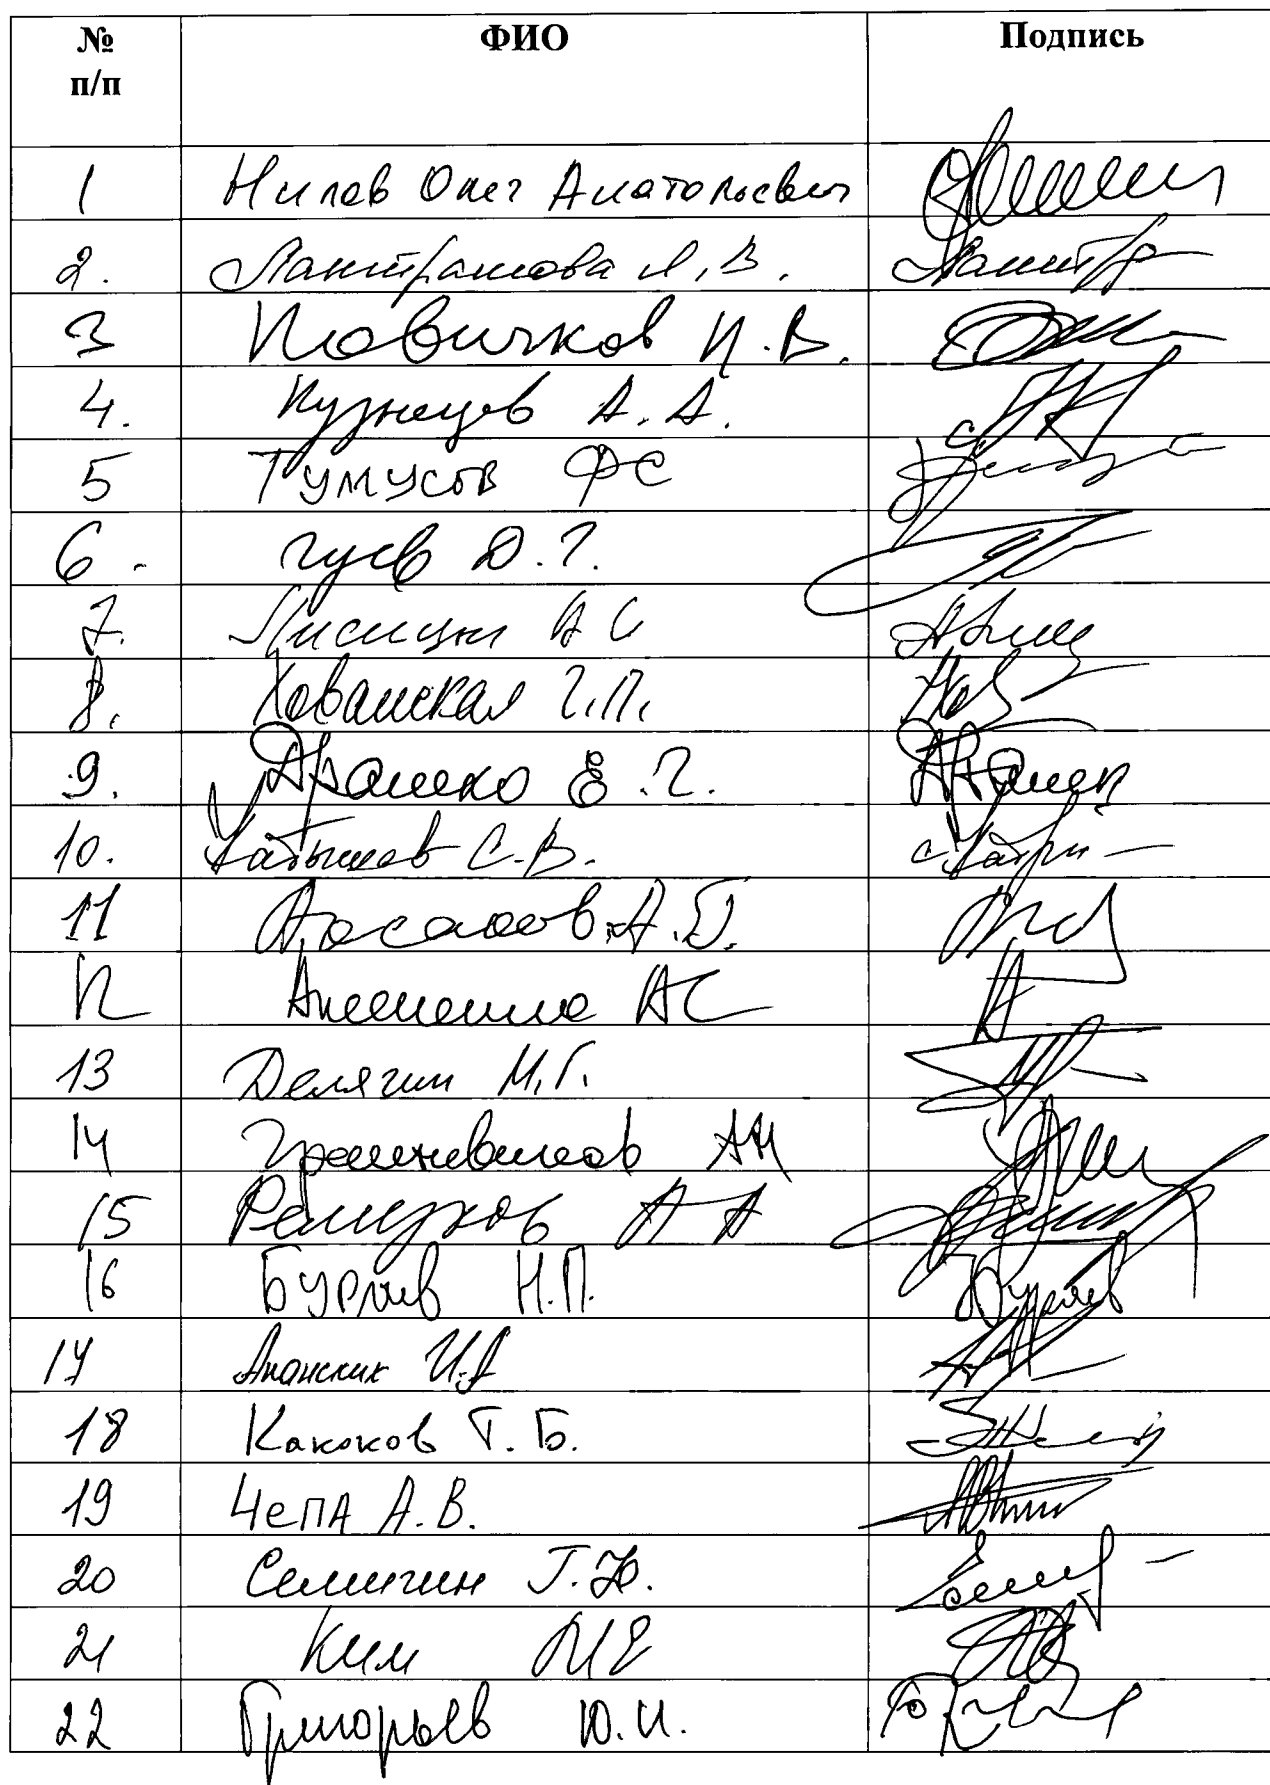 № п/п ФИО Подпись
1 Нилов Олег Анатольевич
2. Лантратова Я. В.
3 Новичков Н. В.
4. Кузнецов А. А.
5 Тумусов ФС
6. Гусев Д. Г.
7. Лисицын А С
8. Хованская Г. П.
9. Драпеко Е. Г.
10. Кабышев С. В.
11 Аксаков А. Г.
12 Аксёненко АС
13 Делягин М. Г.
14 Грешневиков АН
15 Ремезков А А
16 Бурляев Н. П.
17 Ананских И. А
18 Какоков Т. Б.
19 Чепа А. В.
20 Семигин Г. Ю.
21 Ким МЕ
22 Григорьев Ю. И.